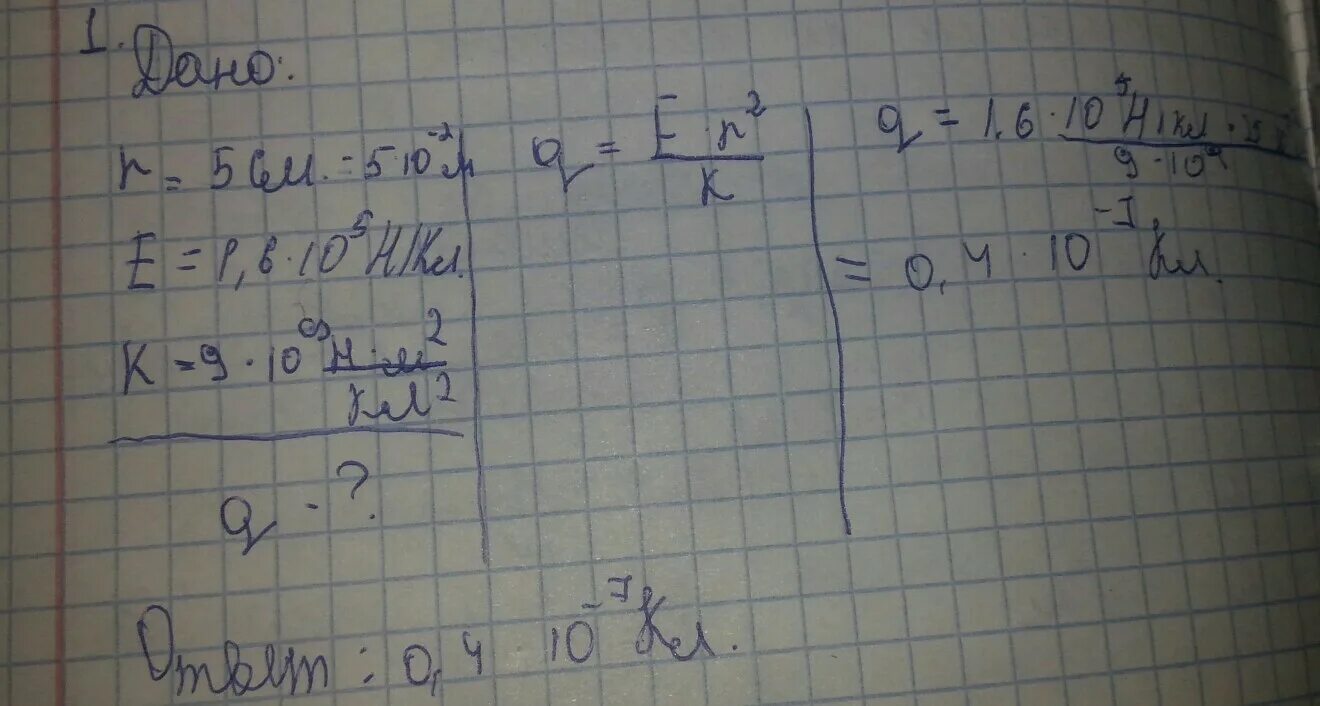 1. Дано:
r = 5 см. = 5·10⁻² м
E = 1,6·10⁵ Н/Кл.
K = 9·10⁹ Н·м²/Кл²
q - ?
q = E·r²/K
q = 1,6·10⁵ Н/Кл · / 9·10⁹
= 0,4·10⁻⁷ Кл.
Ответ: 0,4·10⁻⁷ Кл.